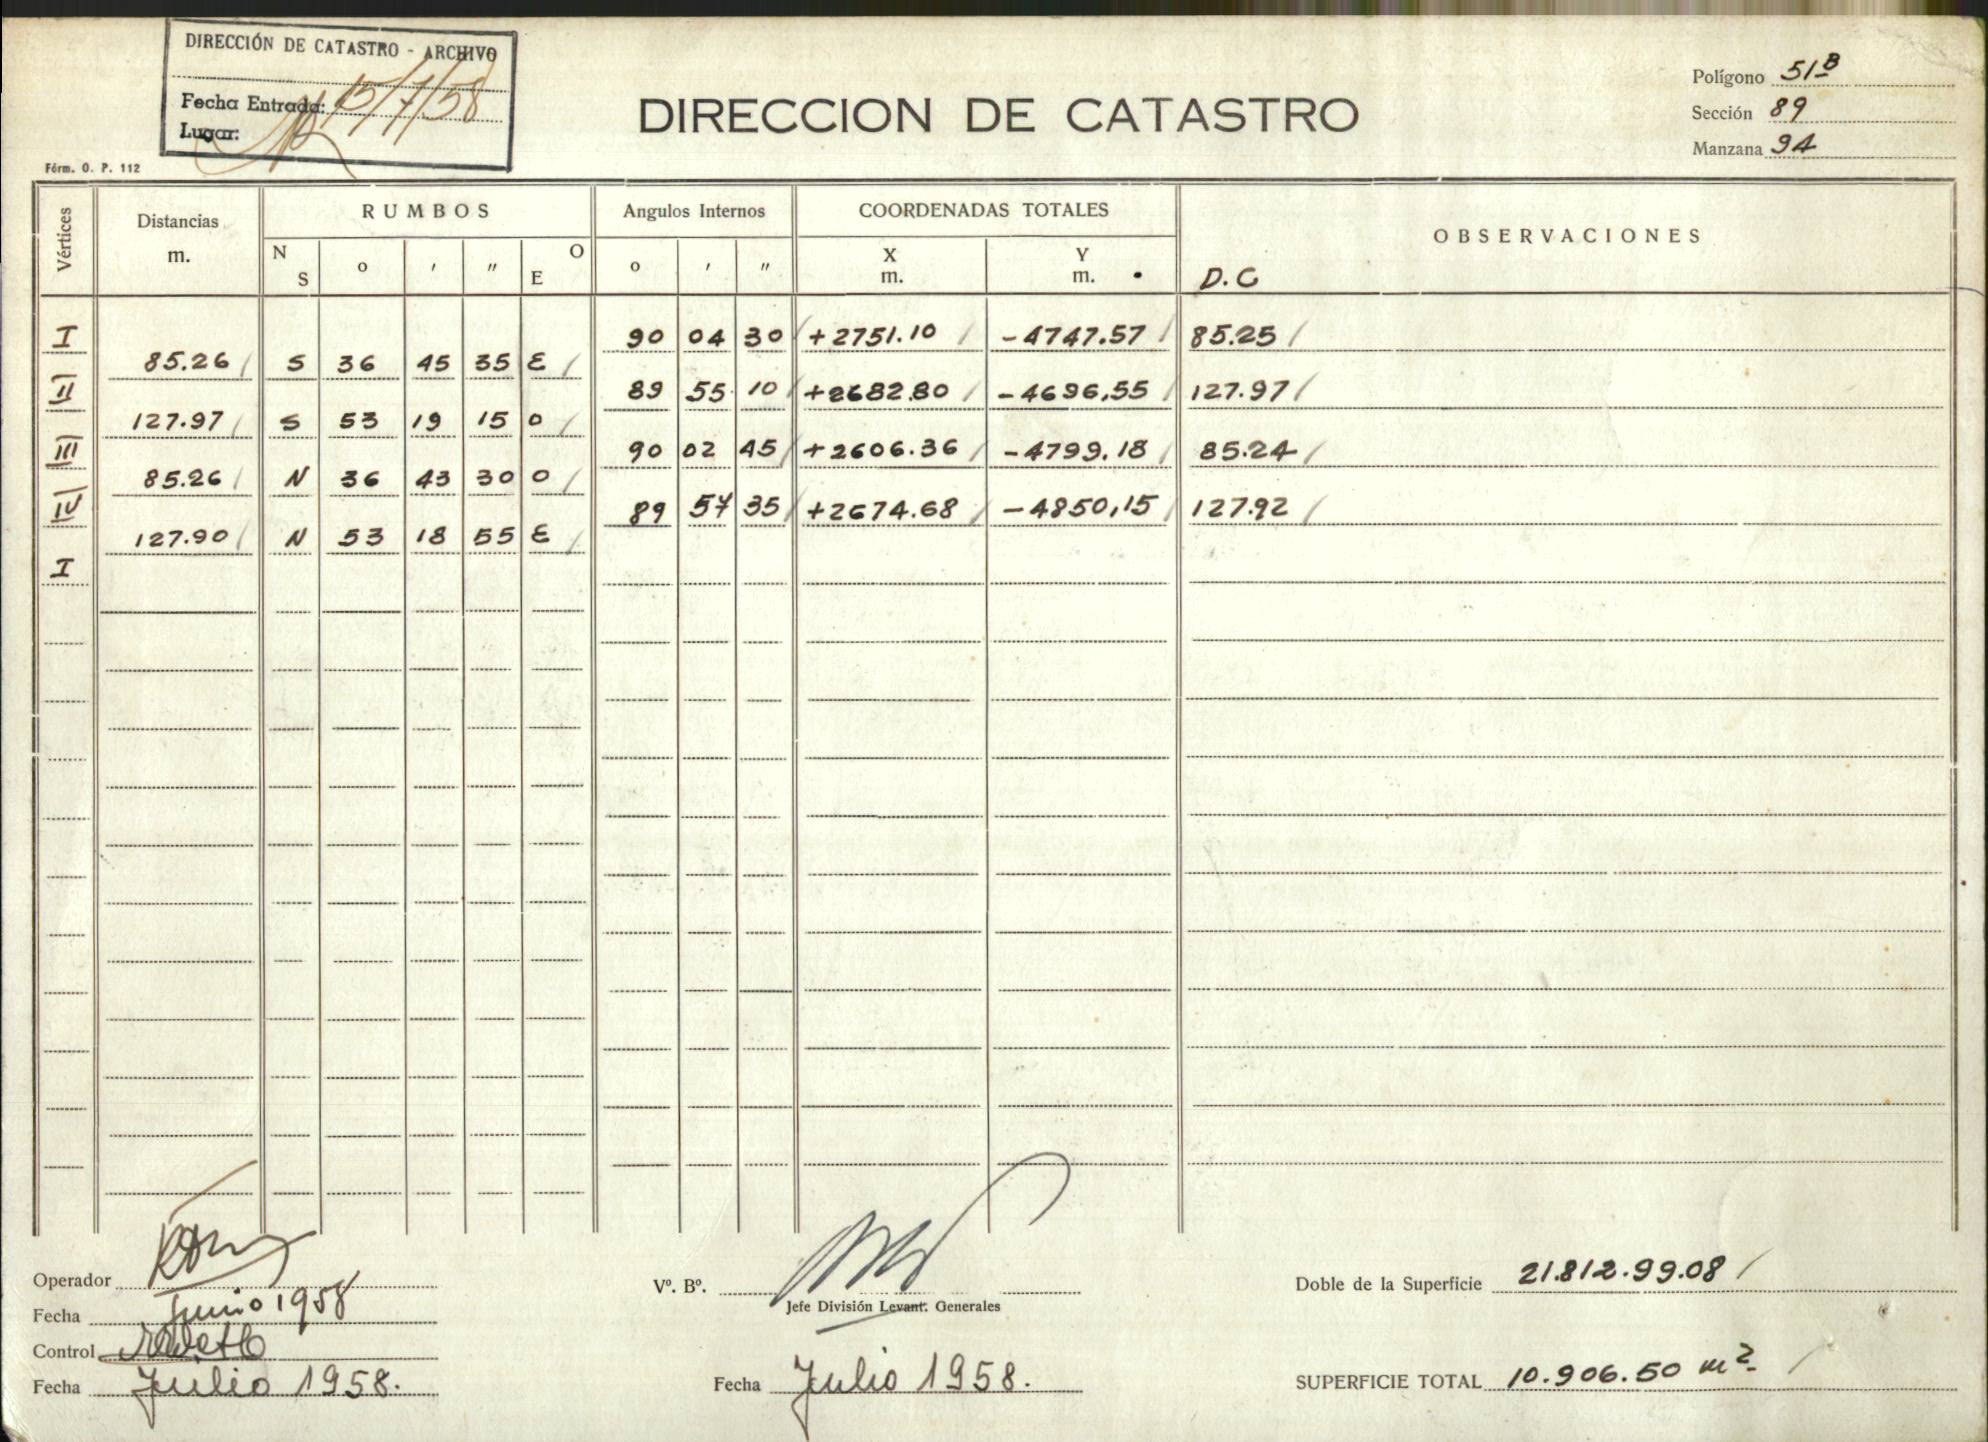 DIRECCIÓN DE CATASTRO - ARCHIVO
Fecha Entrada: 15/7/58
Lugar:
DIRECCION DE CATASTRO
Polígono 51-B
Sección 89
Manzana 94
Fórm. O. P. 112
Vértices Distancias m. RUMBOS Angulos Internos COORDENADAS TOTALES OBSERVACIONES
N S o ' " O E o ' " X m. Y m. D.C
I 90 04 30 +2751.10 -4747.57 85.25
85.26 S 36 45 35 E
II 89 55 10 +2682.80 -4696,55 127.97
127.97 S 53 19 15 O
III 90 02 45 +2606.36 -4799.18 85.24
85.26 N 36 43 30 O
IV 89 57 35 +2674.68 -4850,15 127.92
127.90 N 53 18 55 E
I
Operador
Fecha Junio 1958
Control
Fecha Julio 1958.
Vº. Bº.
Jefe División Levant. Generales
Fecha Julio 1958.
Doble de la Superficie 21.812.99.08
SUPERFICIE TOTAL 10.906.50 m2